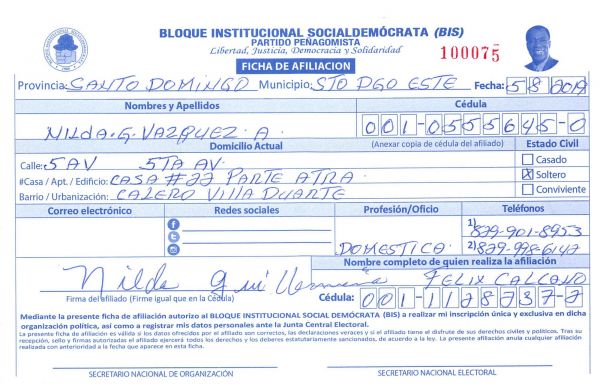 BLOQUE INSTITUCIONAL SOCIALDEMÓCRATA (BIS)
PARTIDO PEÑAGOMISTA
Libertad, Justicia, Democracia y Solidaridad
100075
FICHA DE AFILIACION
Provincia: SANTO DOMINGO Municipio: STO DGO ESTE Fecha: 5 8 2019
Nombres y Apellidos Cédula
NILDA.G.VAZQUEZ A. 001-0555645-0
Domicilio Actual (Anexar copia de cédula del afiliado) Estado Civil
Calle: 5 AV 5TA AV. Casado
#Casa / Apt. / Edificio: CASA #22 PARTE ATRA. X Soltero
Barrio / Urbanización: CALERO VILLA DUARTE Conviviente
Correo electrónico Redes sociales Profesión/Oficio Teléfonos
1) 829-901-8953
DOMESTICA. 2) 829-998-6142
Nombre completo de quien realiza la afiliación
Nilda Guillermina FELIX
Firma del afiliado (Firme igual que en la Cédula) Cédula: 001-1128737-7
Mediante la presente ficha de afiliación autorizo al BLOQUE INSTITUCIONAL SOCIAL DEMÓCRATA (BIS) a realizar mi inscripción única y exclusiva en dicha
organización política, así como a registrar mis datos personales ante la Junta Central Electoral.
La presente ficha de afiliación es válida si los datos ofrecidos por el afiliado son correctos, las declaraciones veraces y si el afiliado tiene el disfrute de sus derechos civiles y políticos. Tras su
recepción, sello y firmas autorizadas el afiliado ejercerá todos los derechos y los deberes estatutariamente sancionados, de acuerdo a la ley. La presente afiliación anula cualquier afiliación
realizada con anterioridad a la fecha que aparece en esta ficha.
SECRETARIO NACIONAL DE ORGANIZACIÓN SECRETARIO NACIONAL ELECTORAL